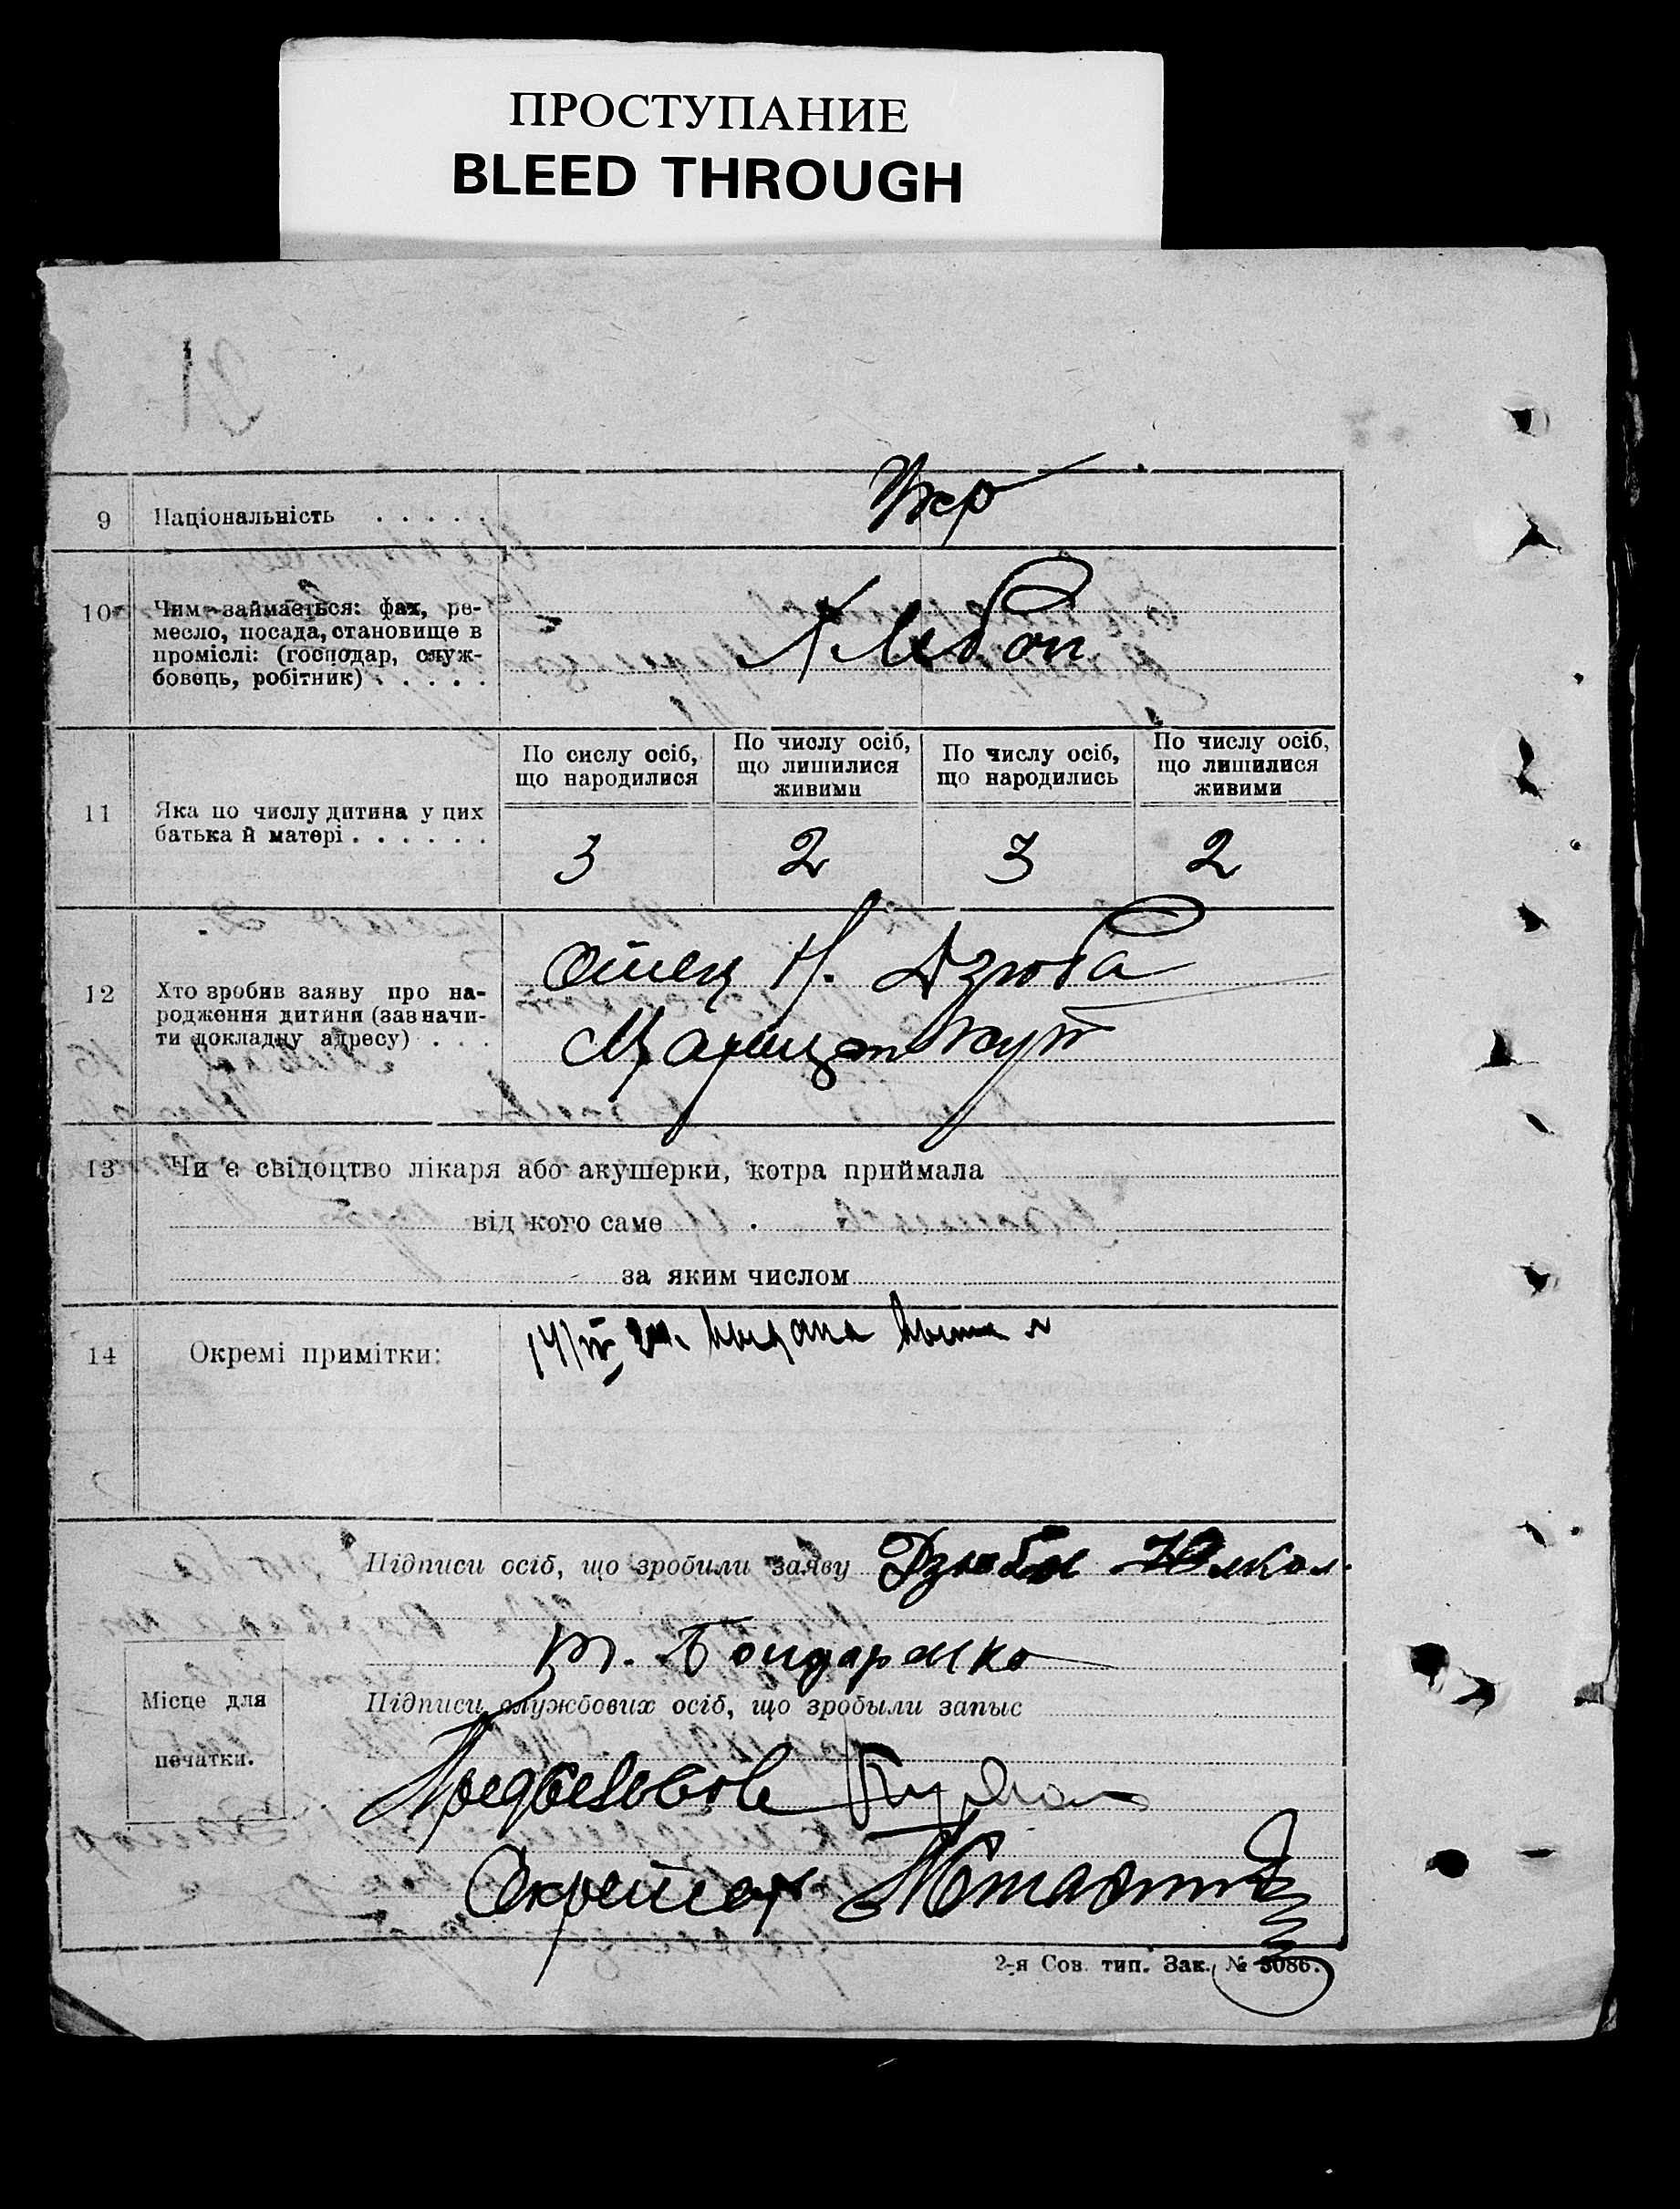 ПРОСТУПАНИЕ
BLEED THROUGH
9 Національність . . . . . Укр
10 Чим займається: фах, ре-
месло, посада, становище в
проміслі: (господар, служ-
бовець, робітник) . . . . .
Хлебоп
11 Яка по числу дитина у цих
батька й матері . . . . . .
По сислу осіб,
що народилися
По числу осіб,
що лишилися
живими
По числу осіб,
що народились
По числу осіб,
що лишилися
живими
3 2 3 2
12 Хто зробив заяву про на-
родження дитини (зазначи-
ти докладну адресу) . . .
Отец Н. Дзюба
13 Чи є свідоцтво лікаря або акушерки, котра приймала
від кого саме
за яким числом
14 Окремі примітки:
Підписи осіб, що зробили заяву Дзюба
Бондаренко
Місце для
печатки.
Підписи службових осіб, що зробыли запыс
Секретар
2-я Сов. тип. Зак. № 3086.